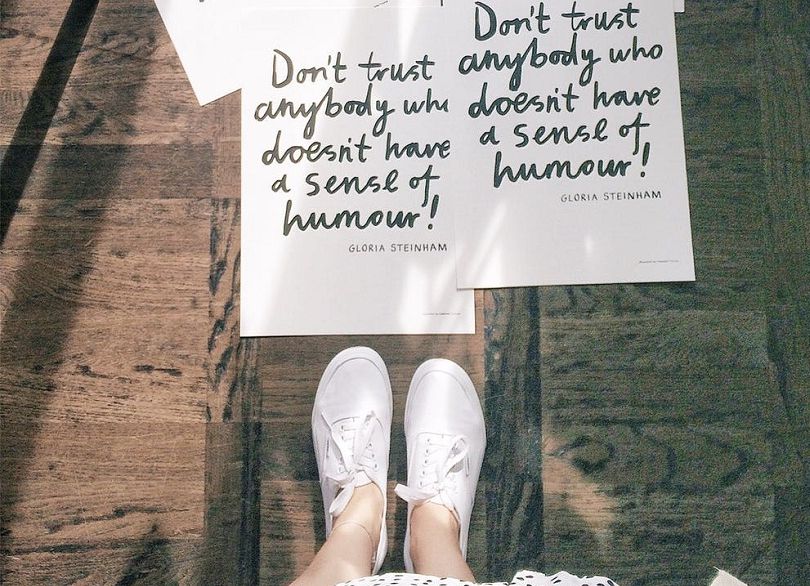 Don't trust
anybody who
doesn't have
a sense of
humour!
GLORIA STEINHAM
Don't trust
anybody who
doesn't have
a sense of
humour!
GLORIA STEINHAM